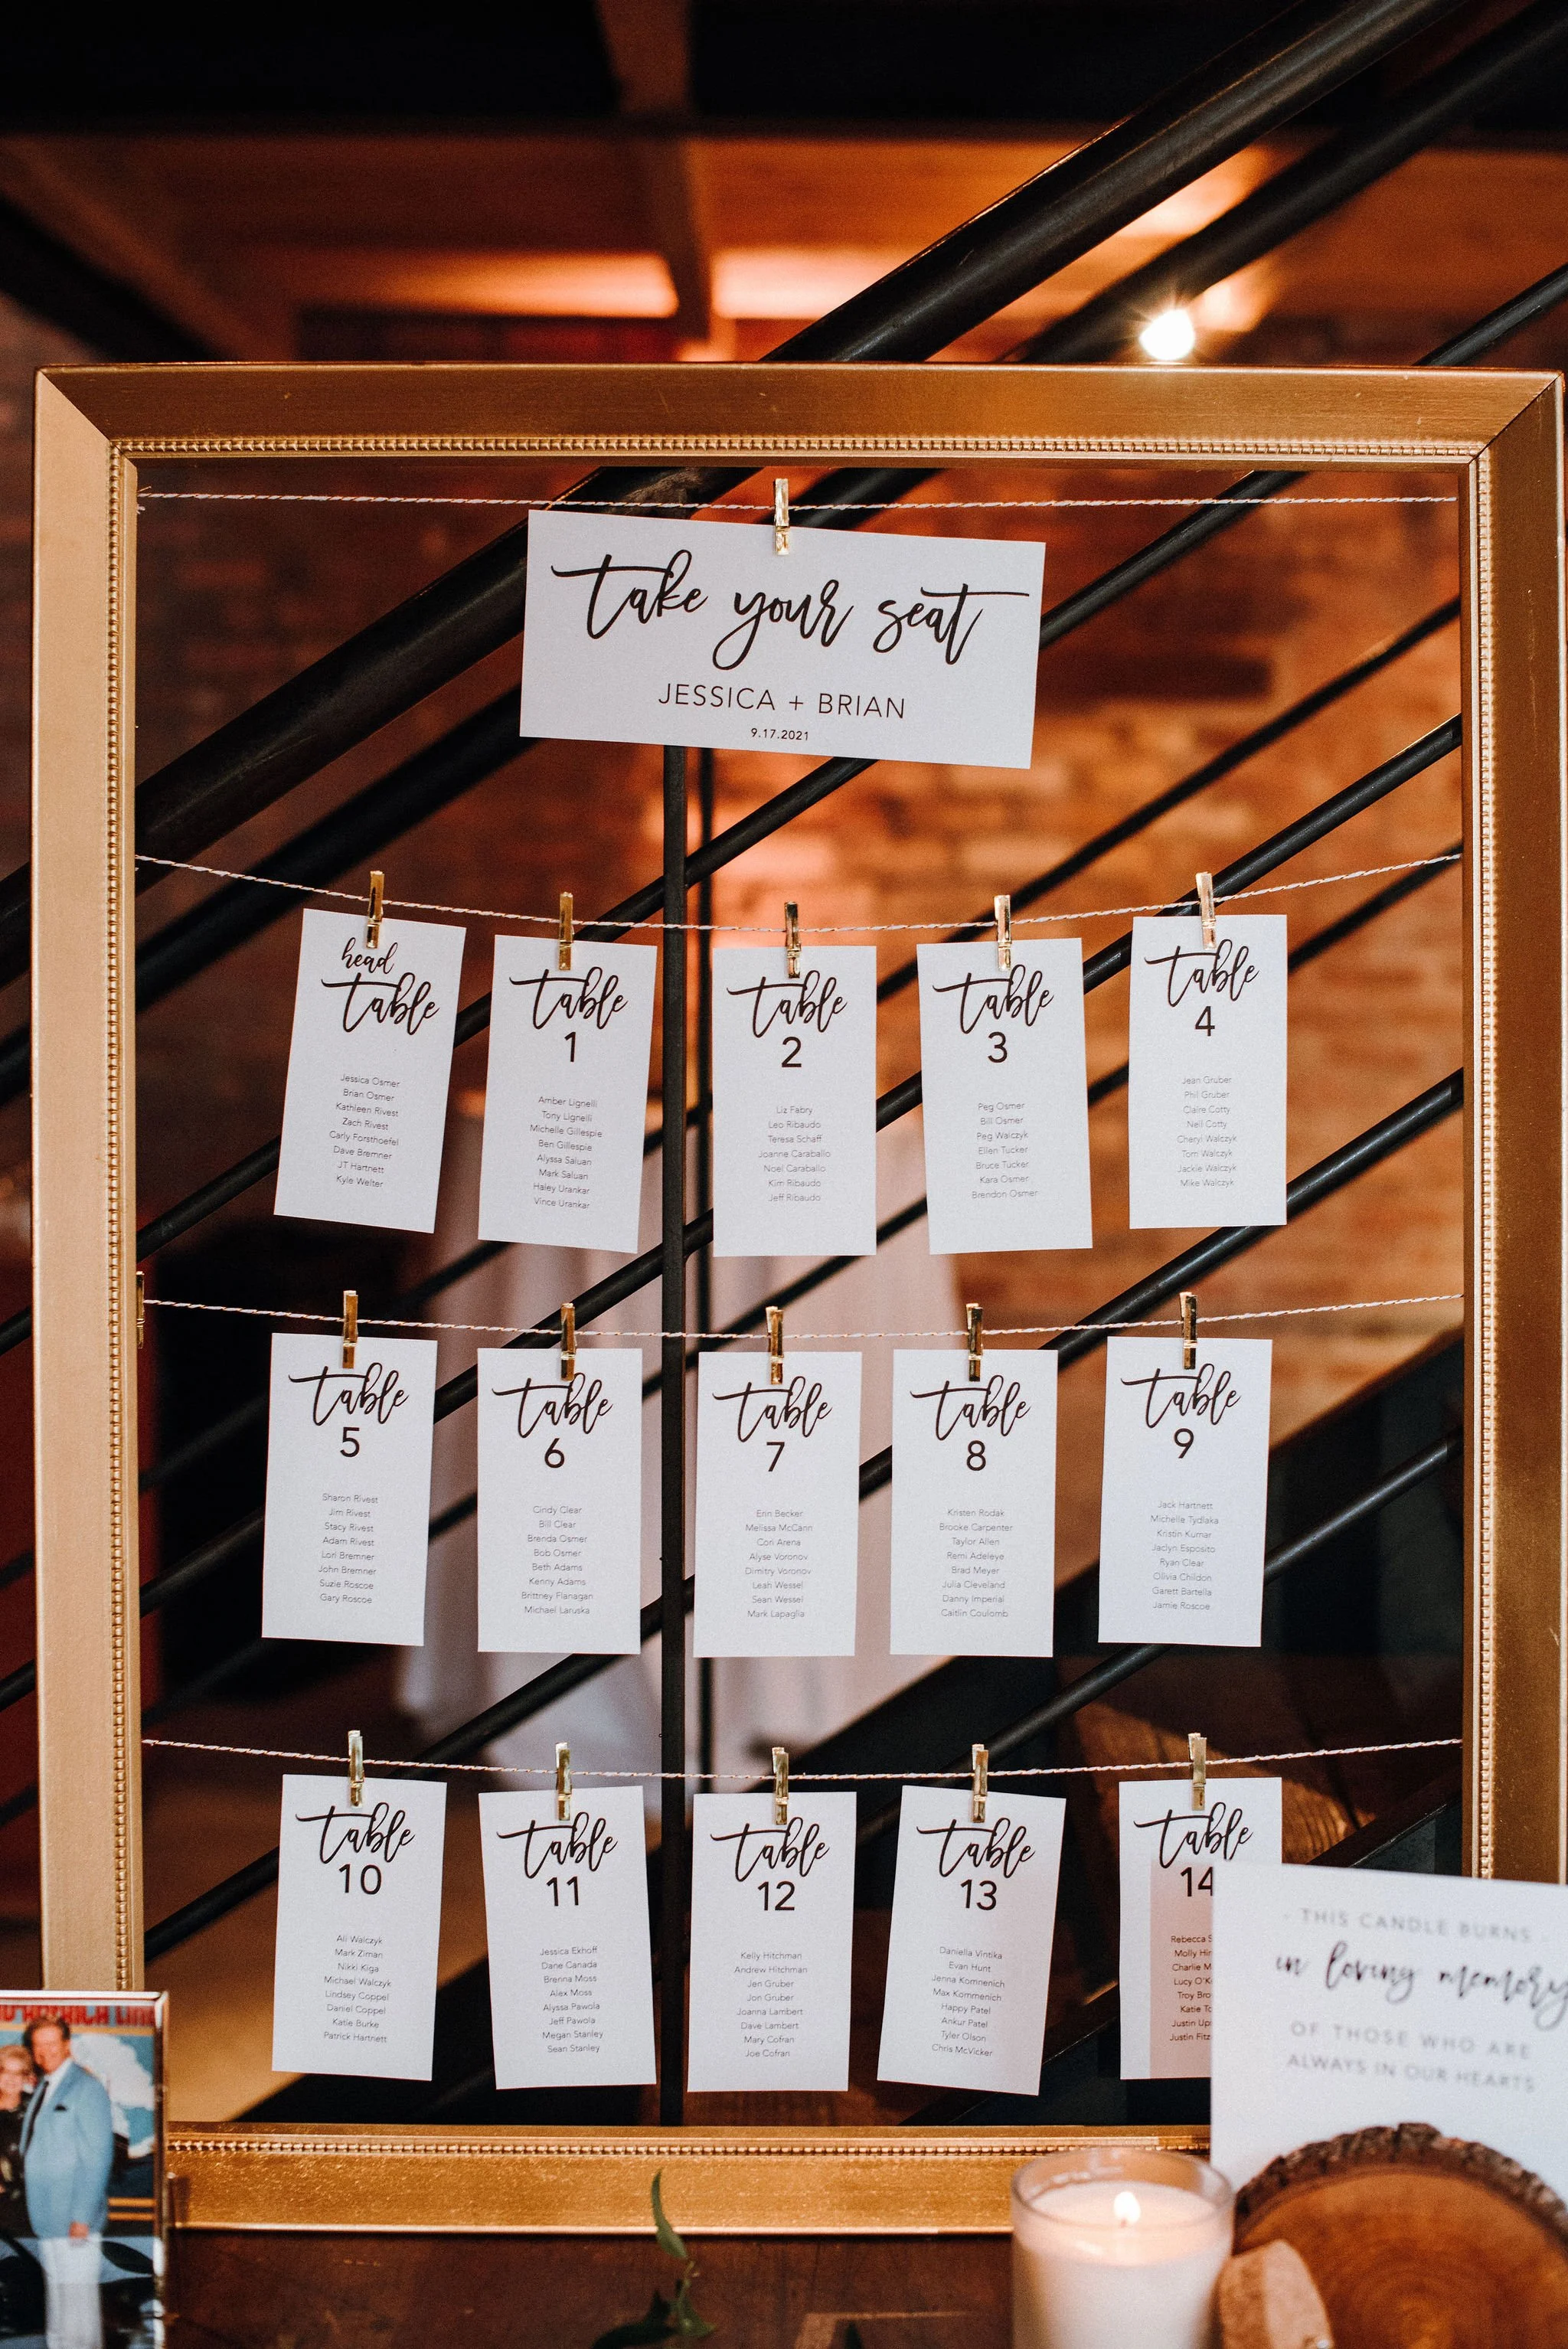 take your seat
JESSICA + BRIAN
9.17.2021
head
table
Jessica Osmer
Brian Osmer
Kathleen Rivest
Zach Rivest
Carly Forsthoefel
Dave Bremner
JT Hartnett
Kyle Welter
table
1
Amber Lignelli
Tony Lignelli
Michelle Gillespie
Ben Gillespie
Alyssa Saluan
Mark Saluan
Haley Urankar
Vince Urankar
table
2
Liz Fabry
Leo Ribaudo
Teresa Schaff
Joanne Caraballo
Noel Caraballo
Kim Ribaudo
Jeff Ribaudo
table
3
Peg Osmer
Bill Osmer
Peg Walczyk
Ellen Tucker
Bruce Tucker
Kara Osmer
Brendon Osmer
table
4
Jean Gruber
Phil Gruber
Claire Cotty
Neil Cotty
Cheryl Walczyk
Tom Walczyk
Jackie Walczyk
Mike Walczyk
table
5
Sharon Rivest
Jim Rivest
Stacy Rivest
Adam Rivest
Lori Bremner
John Bremner
Suzie Roscoe
Gary Roscoe
table
6
Cindy Clear
Bill Clear
Brenda Osmer
Bob Osmer
Beth Adams
Kenny Adams
Brittney Flanagan
Michael Laruska
table
7
Erin Becker
Melissa McCann
Cori Arena
Alyse Voronov
Dimitry Voronov
Leah Wessel
Sean Wessel
Mark Lapaglia
table
8
Kristen Rodak
Brooke Carpenter
Taylor Allen
Remi Adeleye
Brad Meyer
Julia Cleveland
Danny Imperial
Caitlin Coulomb
table
9
Jack Hartnett
Michelle Tydlaka
Kristin Kumar
Jaclyn Esposito
Ryan Clear
Olivia Childon
Garett Bartella
Jamie Roscoe
table
10
Ali Walczyk
Mark Ziman
Nikki Kiga
Michael Walczyk
Lindsey Coppel
Daniel Coppel
Katie Burke
Patrick Hartnett
table
11
Jessica Ekhoff
Dane Canada
Brenna Moss
Alex Moss
Alyssa Pawola
Jeff Pawola
Megan Stanley
Sean Stanley
table
12
Kelly Hitchman
Andrew Hitchman
Jen Gruber
Jon Gruber
Joanna Lambert
Dave Lambert
Mary Cofran
Joe Cofran
table
13
Daniella Vintika
Evan Hunt
Jenna Komnenich
Max Kommenich
Happy Patel
Ankur Patel
Tyler Olson
Chris McVicker
table
14
Rebecca S
Molly
Charlie M
Lucy O'K
Troy
Katie
Justin
Justin
THIS CANDLE BURNS
in loving memory
OF THOSE WHO ARE
ALWAYS IN OUR HEARTS